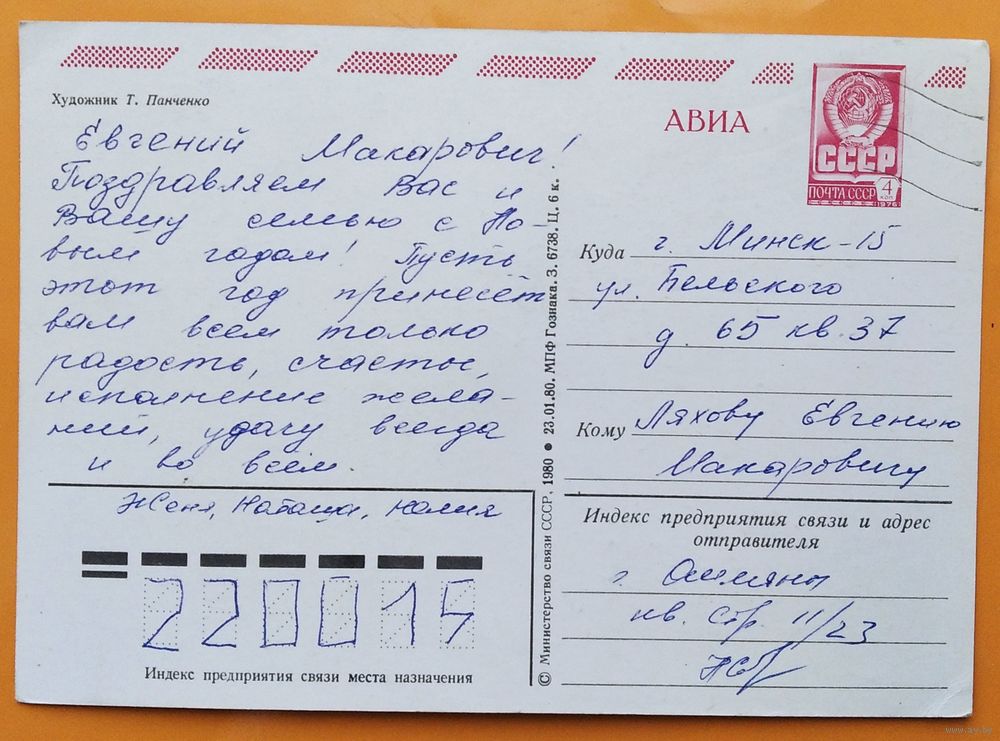 Художник Т. Панченко
Евгений Макарович!
Поздравляем Вас и
Вашу семью с Но-
вым годом! Пусть
этот год принесёт
вам всем только
радость, счастье,
исполнение жела-
ний, удачу всегда
и во всём.
Женя, Наташа, Юлия
220015
Индекс предприятия связи места назначения
© Министерство связи СССР, 1980 ● 23.01.80. МПФ Гознака. З. 6738. Ц. 6 к.
АВИА
СССР
ПОЧТА СССР 4 КОП
1976
Куда г. Минск-15
ул. Бельского
д. 65 кв. 37
Кому Ляхову Евгению
Макаровичу
Индекс предприятия связи и адрес
отправителя
г. Ошмяны
кв. стр. 11/23